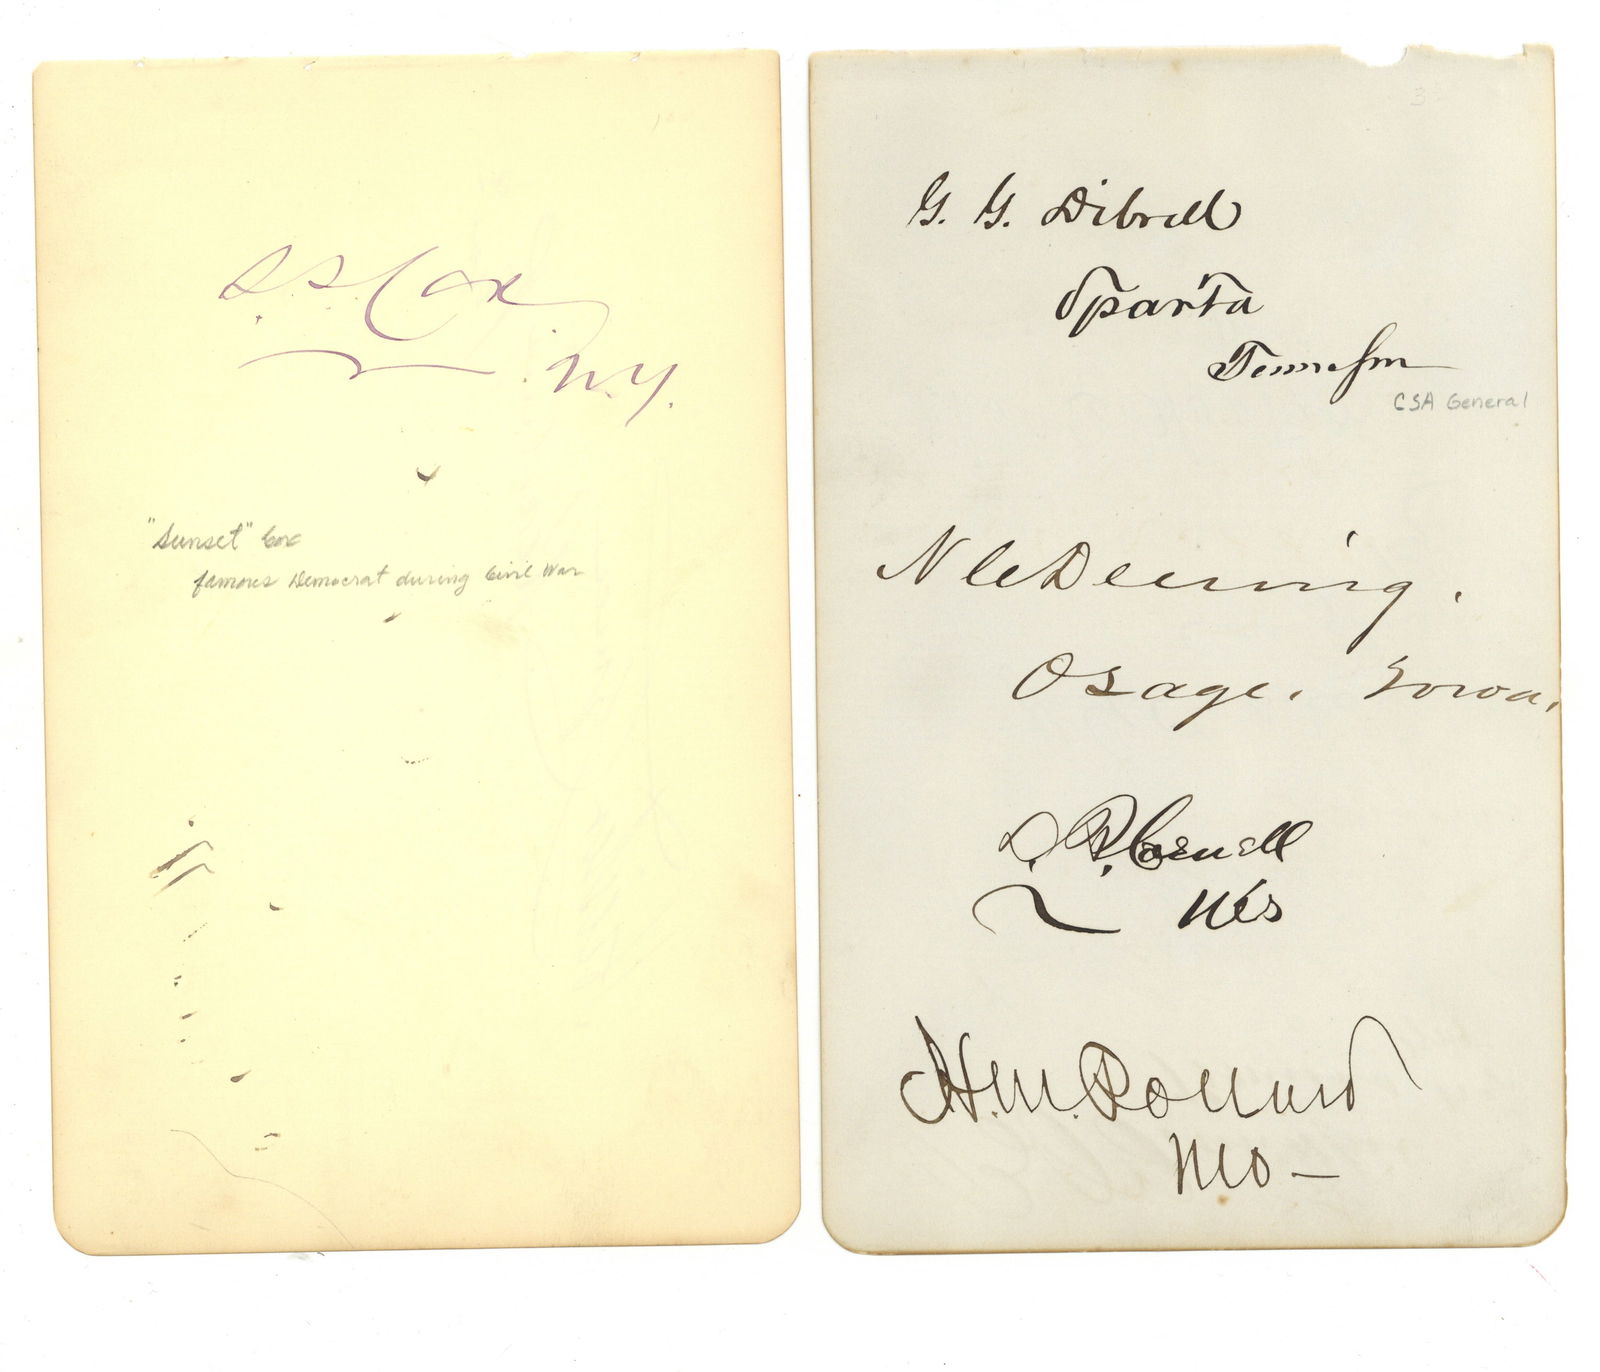 S. S. Cox
N.Y.
"Sunset" Cox
famous Democrat during Civil War
3
G. G. Dibrell
Sparta
Tennessee
CSA General
N C Deering.
Osage. Iowa.
H. M. Pollard
Mo –